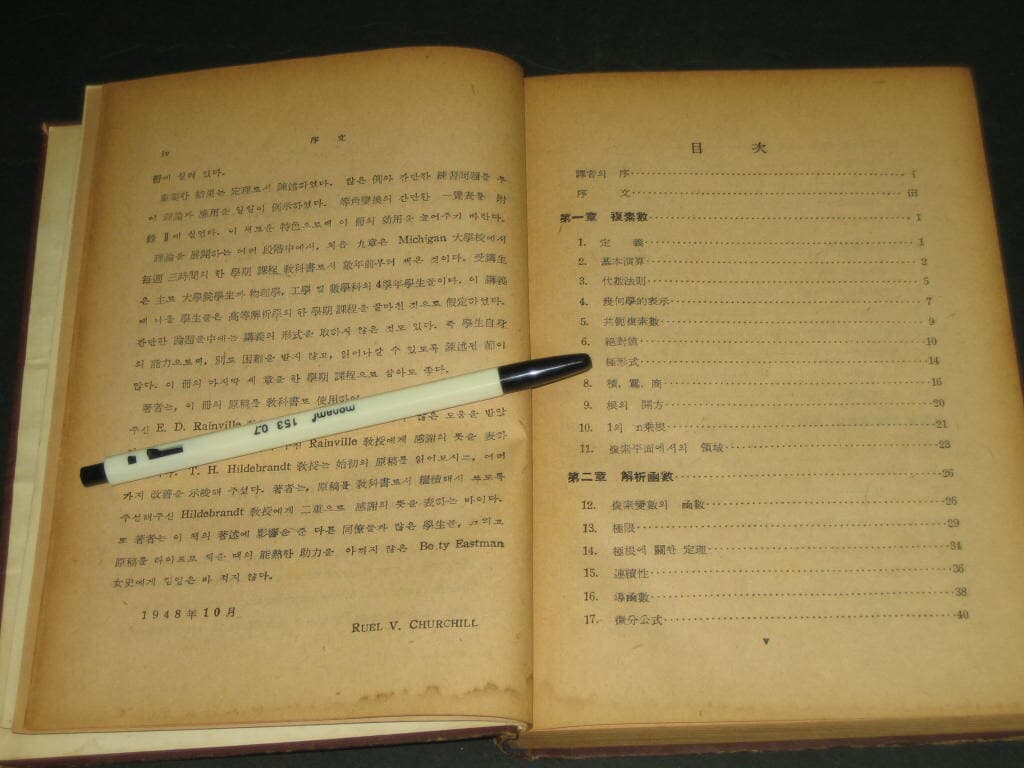 iv
序 文
冊에 실려 있다.
重要한 結果는 定理로서 陳述하였다. 많은 例와 간단한 練習問題를 두
어 理論과 應用을 일일이 例示하였다. 等角變換의 간단한 一覽表를 附
錄 Ⅱ에 실었다. 이 새로운 特色으로써 이 冊의 効用을 높여주기 바란다.
理論을 展開하는 여러 段階中에서, 처음 九章은 Michigan 大學校에서
每週 三時間의 한 學期 課程 敎科書로서 數年前부터 써온 것이다. 受講生
은 主로 大學院學生과 物理學, 工學 및 數學科의 4學年學生들이다. 이 講義
에 나올 學生들은 高等解析學의 한 學期 課程을 끝마친 것으로 假定하였다.
간단한 論題들中에는 講義의 形式을 取하지 않은 것도 있다. 즉 學生自身
의 能力으로써, 別로 困難을 받지 않고, 읽어나갈 수 있도록 陳述된 節이
많다. 이 冊의 마지막 세 章을 한 學期 課程으로 삼아도 좋다.
著者는, 이 冊의 原稿를 敎科書로 使用하여
주신 E. D. Rainville 많은 도움을 받았
Rainville 敎授에게 感謝의 뜻을 表하
T. H. Hildebrandt 敎授는 始初의 原稿를 읽어보시고, 여러
가지 改善을 示唆해 주셨다. 著者는, 原稿를 敎科書로서 繼續해서 쓰도록
주선해주신 Hildebrandt 敎授에게 二重으로 感謝의 뜻을 表하는 바이다.
또 著者는 이 책의 著述에 影響을 준 다른 同僚들과 많은 學生들, 그리고
原稿를 타이프로 찍은 때의 能熱한 助力을 아끼지 않은 Betty Eastman
女史에게 힘입은 바 적지 않다.
1948年 10月
RUEL V. CHURCHILL
monami 153 0.7
目 次
譯者의 序 i
序 文 iii
第一章 複素數 1
1. 定 義 1
2. 基本演算 2
3. 代數法則 5
4. 幾何學的表示 7
5. 共軛複素數 9
6. 絶對値 10
極形式 14
8. 積, 冪, 商 16
9. 根의 開方 20
10. 1의 n乘根 21
11. 複素平面에서의 領域 23
第二章 解析函數 26
12. 複素變數의 函數 26
13. 極限 29
14. 極限에 關한 定理 34
15. 連續性 36
16. 導函數 38
17. 微分公式 40
v